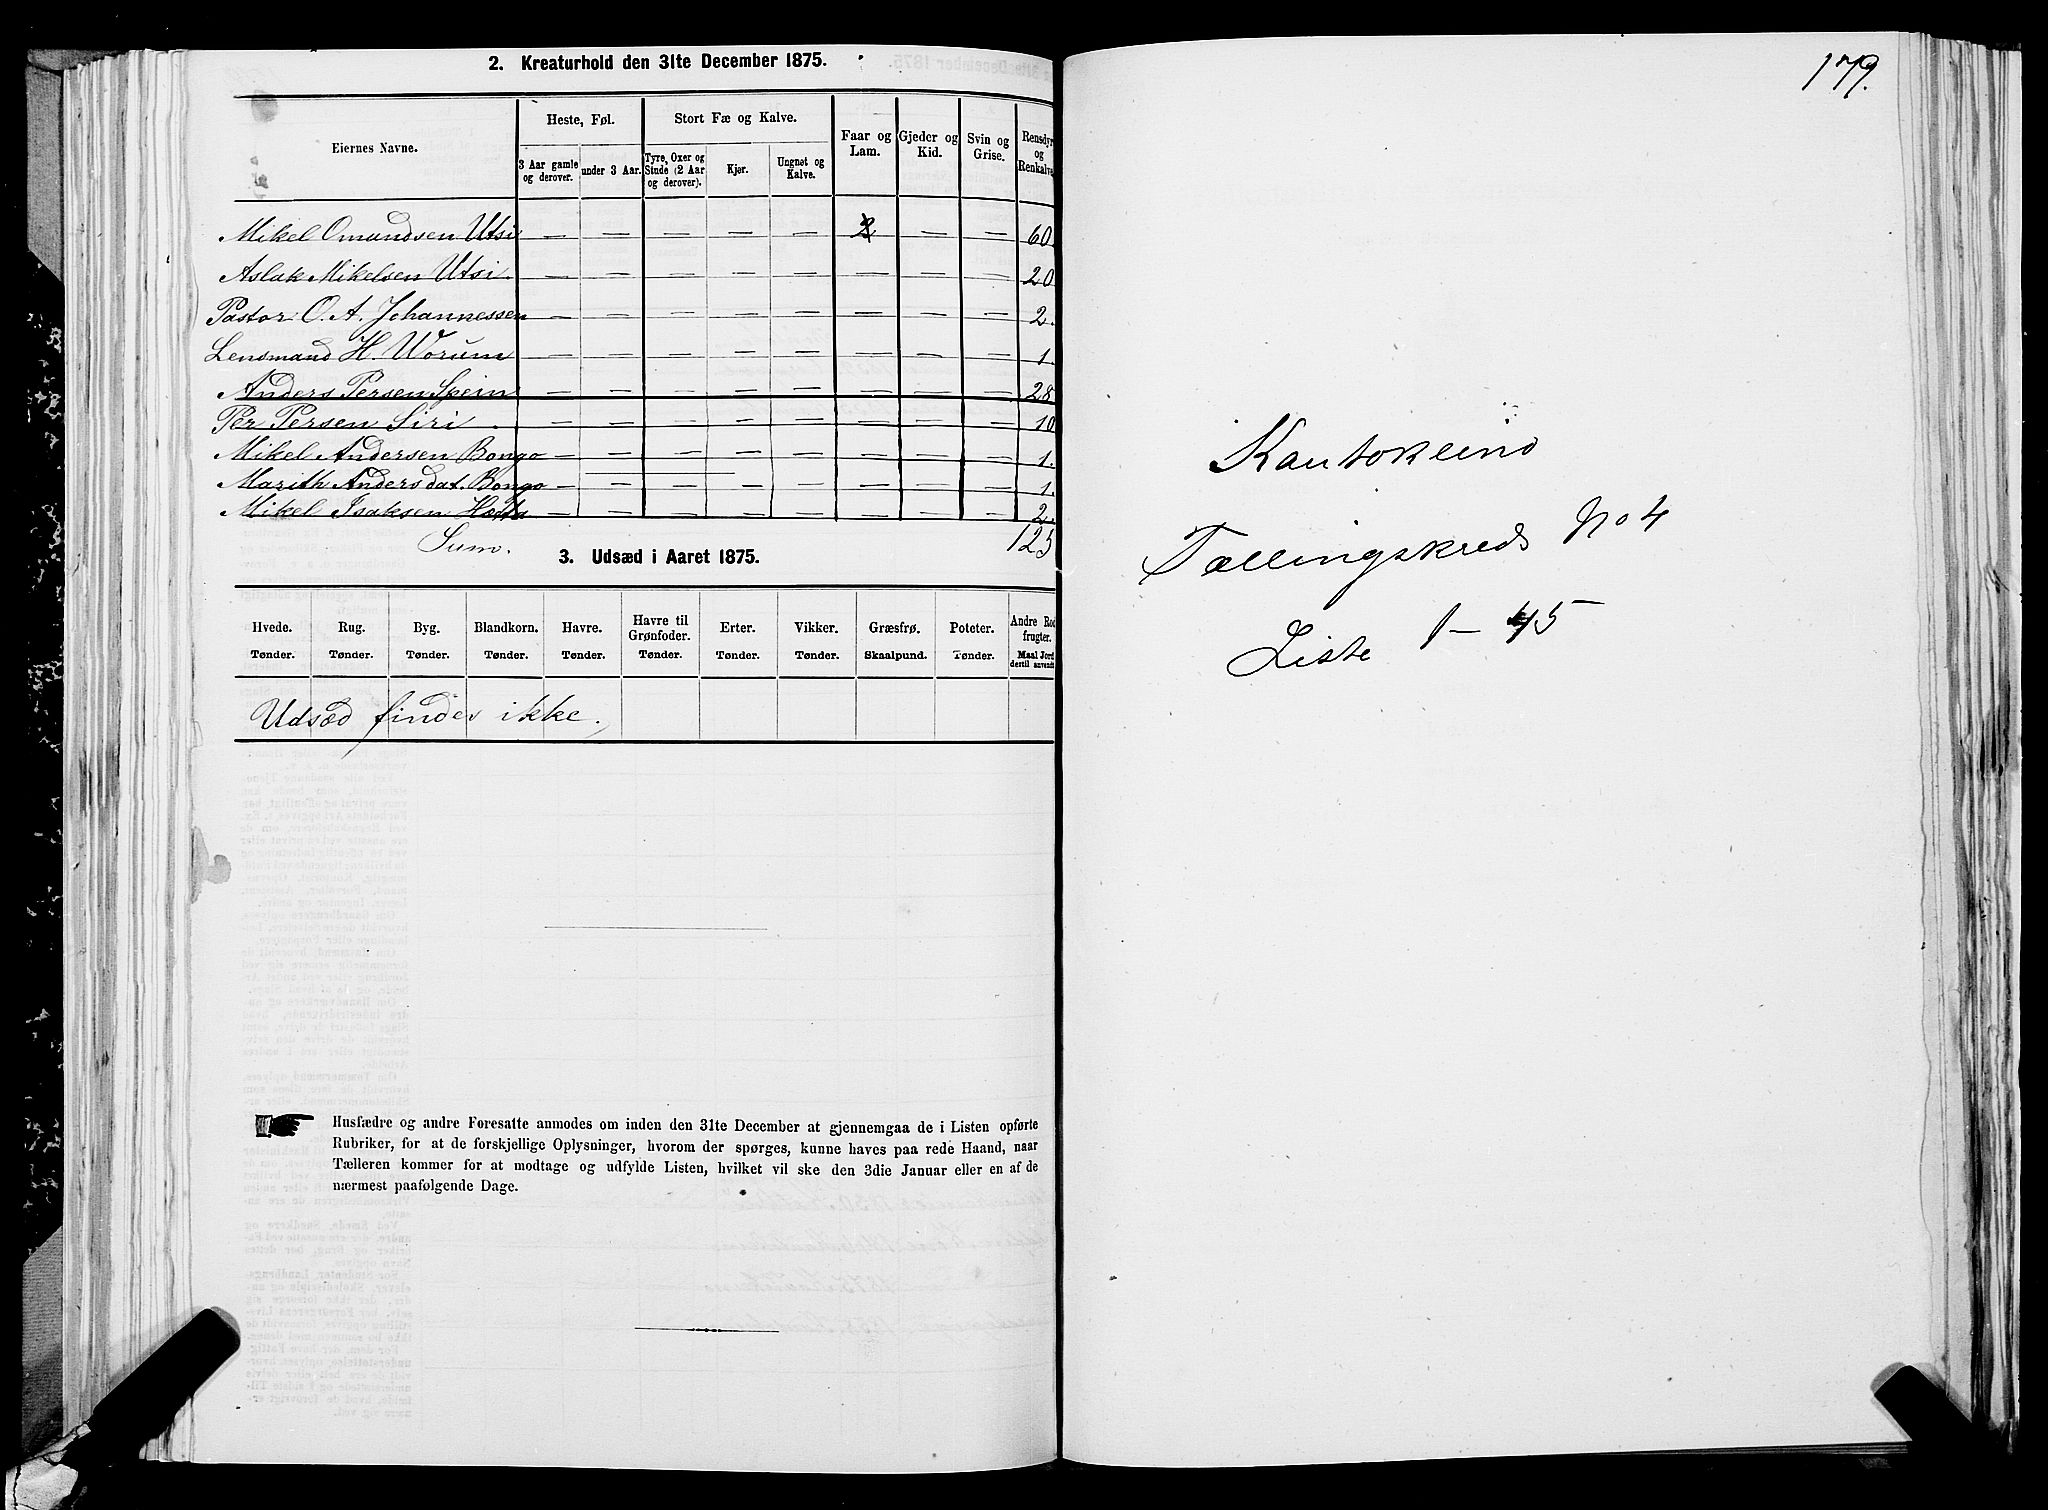 2. Kreaturhold den 31te December 1875.
Eiernes Navne.
Heste, Føl.
Stort Fæ og Kalve.
Faar og Lam.
Gjeder og Kid.
Svin og Grise.
Rensdyr og Renkalve
3 Aar gamle og derover.
under 3 Aar.
Tyre, Oxer og Stude (2 Aar og derover).
Kjør.
Ungnøt og Kalve.
Mikel Omundsen Utsi — — — — — 2 — — 60.
Aslak Mikelsen Utsi. — — — — — — — — 20
Pastor O. A. Johannessen — — — — — — — — 2.
Lensmand H. Worum — — — — — — — — 1.
Anders Persen Spein — — — — — — — — 28
Per Persen Siri . — — — — — — — — 10
Mikel Andersen Bongo — — — — — — — — 1.
Marith Andersdat. Bongo — — — — — — — — 1.
Mikel Isaksen Hætta — — — — — — — — 2.
Sum. 125
3. Udsæd i Aaret 1875.
Hvede. Rug. Byg. Blandkorn. Havre. Havre til Grønfoder. Erter. Vikker. Græsfrø. Poteter. Andre Rodfrugter.
Tønder. Tønder. Tønder. Tønder. Tønder. Tønder. Tønder. Tønder. Skaalpund. Tønder. Maal Jord dertil anvendt
Udsæd findes ikke.
Husfædre og andre Foresatte anmodes om inden den 31te December at gjennemgaa de i Listen opførte
Rubriker, for at de forskjellige Oplysninger, hvorom der spørges, kunne haves paa rede Haand, naar
Tælleren kommer for at modtage og udfylde Listen, hvilket vil ske den 3die Januar eller en af de
nærmest paafølgende Dage.
179.
Kautokeino
Tællingskreds No 4
Liste 1 — 45